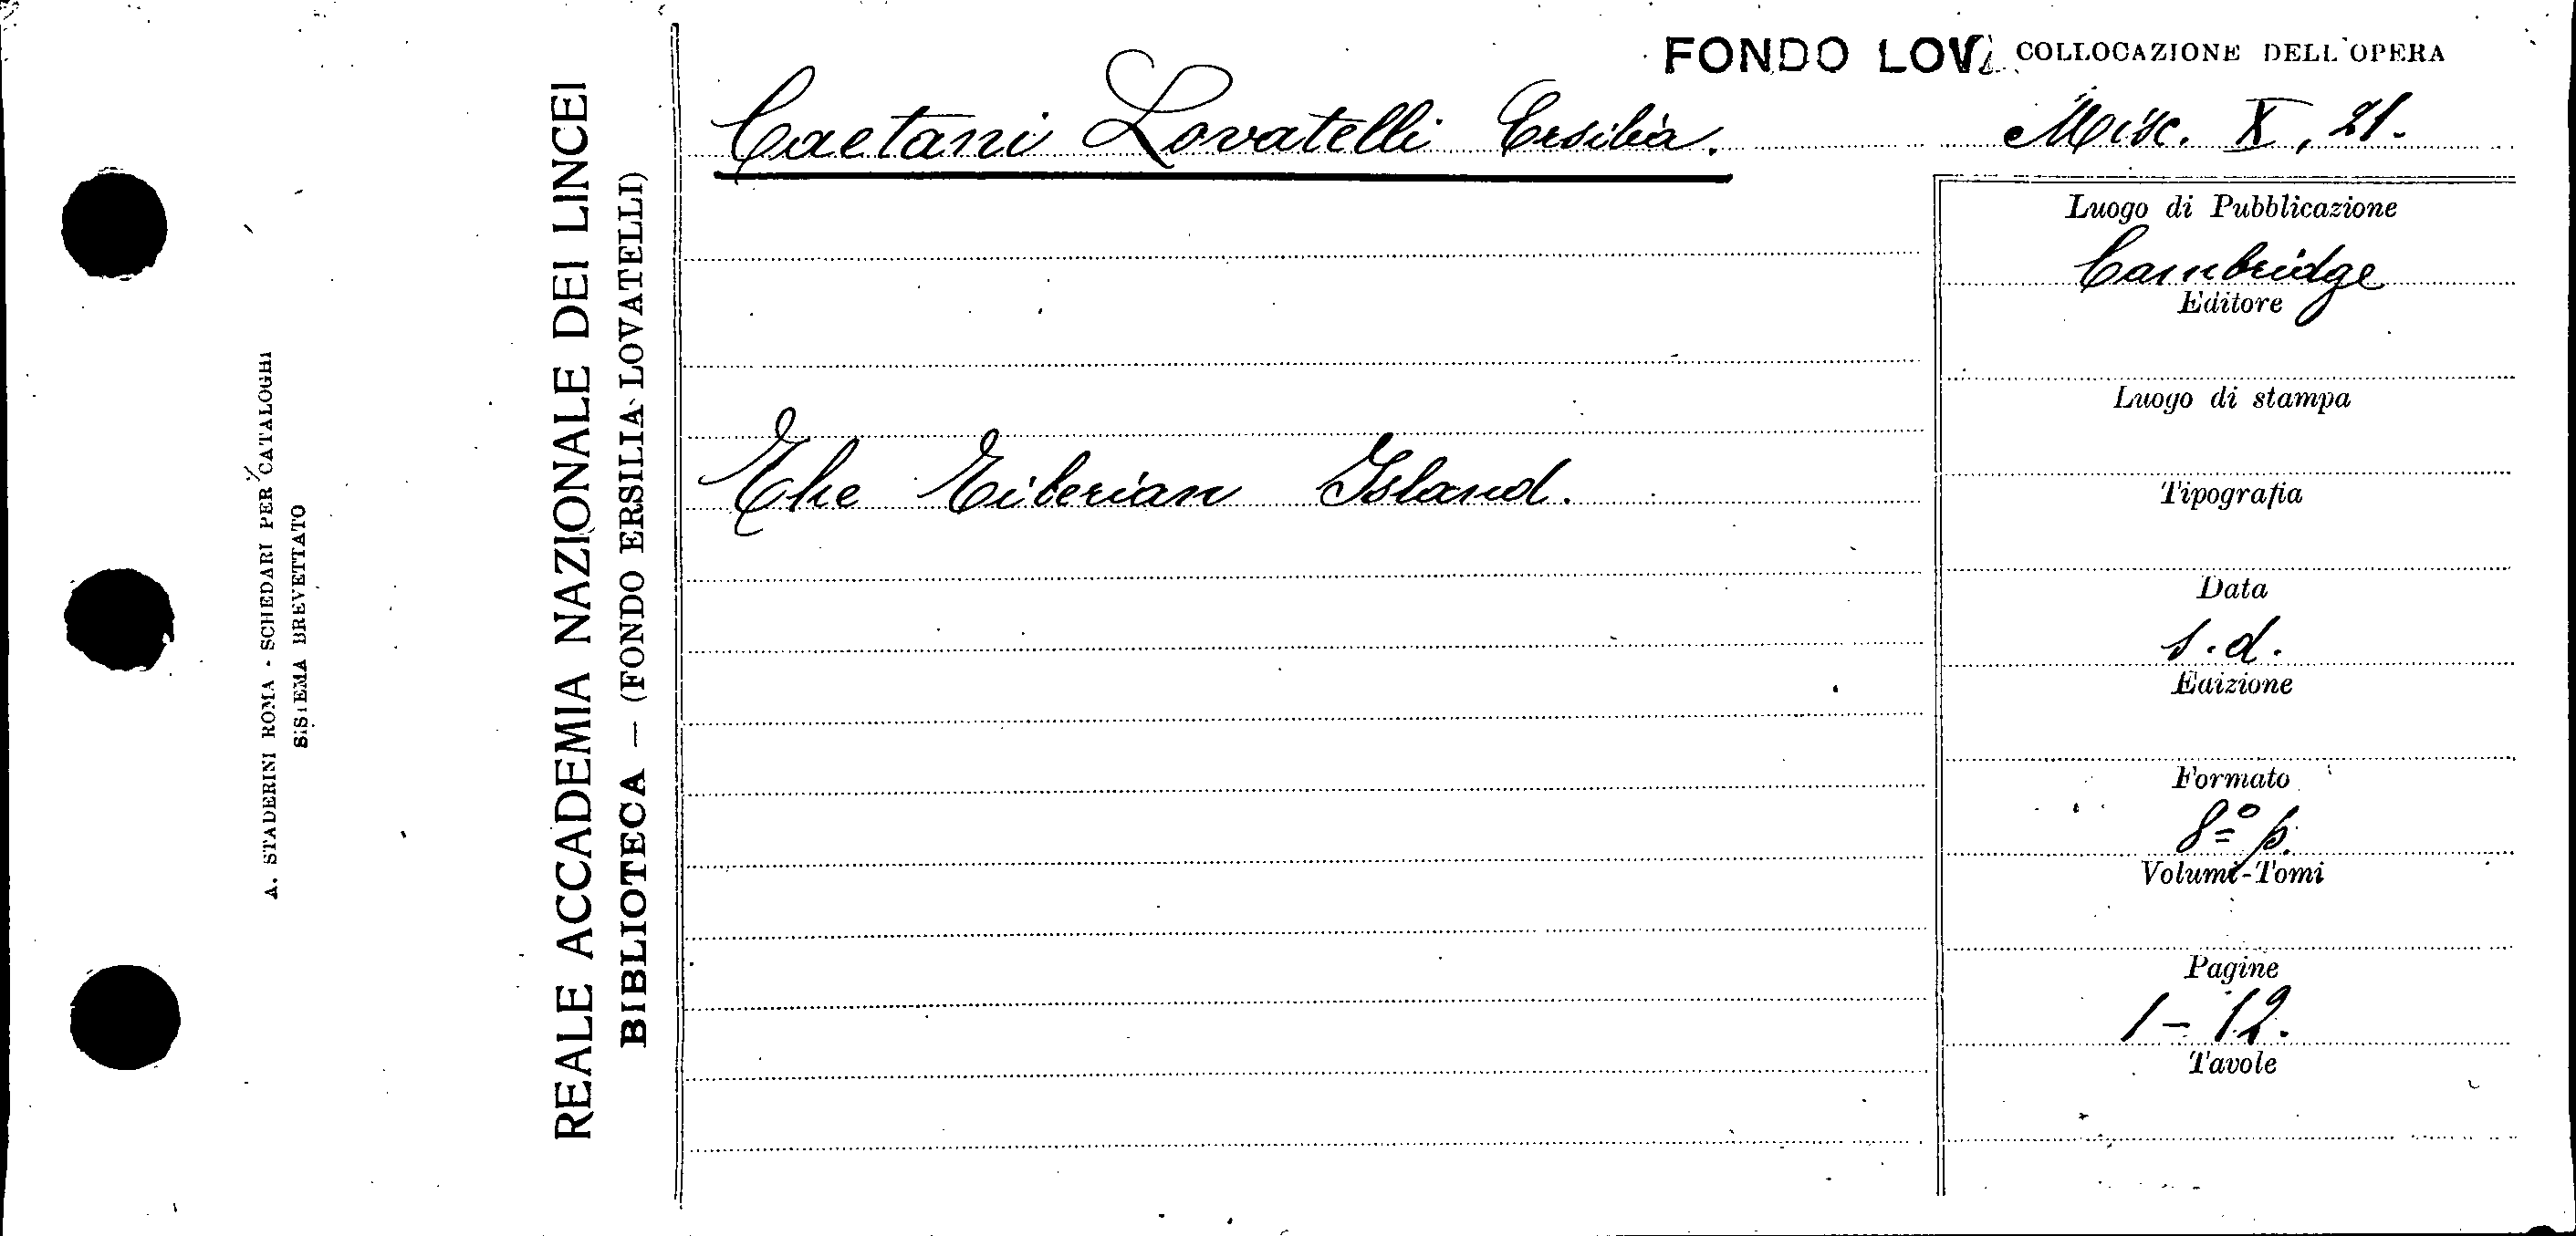 A. STADERINI ROMA - SCHEDARI PER CATALOGHI
SISTEMA BREVETTATO
REALE ACCADEMIA NAZIONALE DEI LINCEI
BIBLIOTECA — (FONDO ERSILIA LOVATELLI)
FONDO LOV
COLLOCAZIONE DELL'OPERA
Caetani Lovatelli Ersilia.
Misc. X, 21.
Luogo di Pubblicazione
Cambridge
Editore
Luogo di stampa
The Tiberian Island.
Tipografia
Data
s.d.
Edizione
Formato
8º p.
Volumi-Tomi
Pagine
1-12.
Tavole